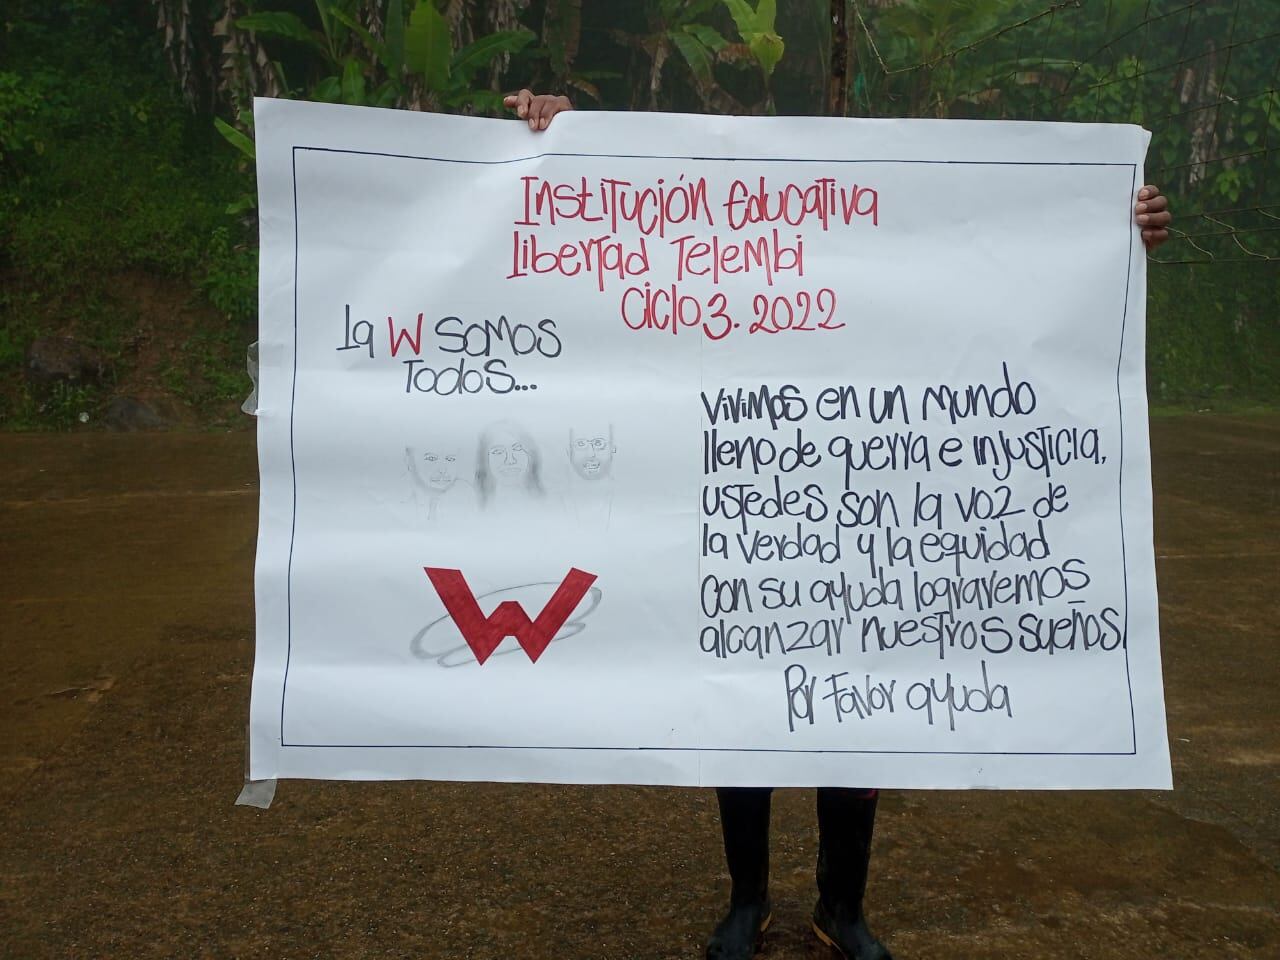 Institución Educativa
Libertad Telembi
Ciclo 3. 2022
La W somos
Todos...
Vivimos en un mundo
lleno de guerra e injusticia,
ustedes son la voz de
la verdad y la equidad
con su ayuda lograremos
alcanzar nuestros sueños.
Por Favor ayuda
W